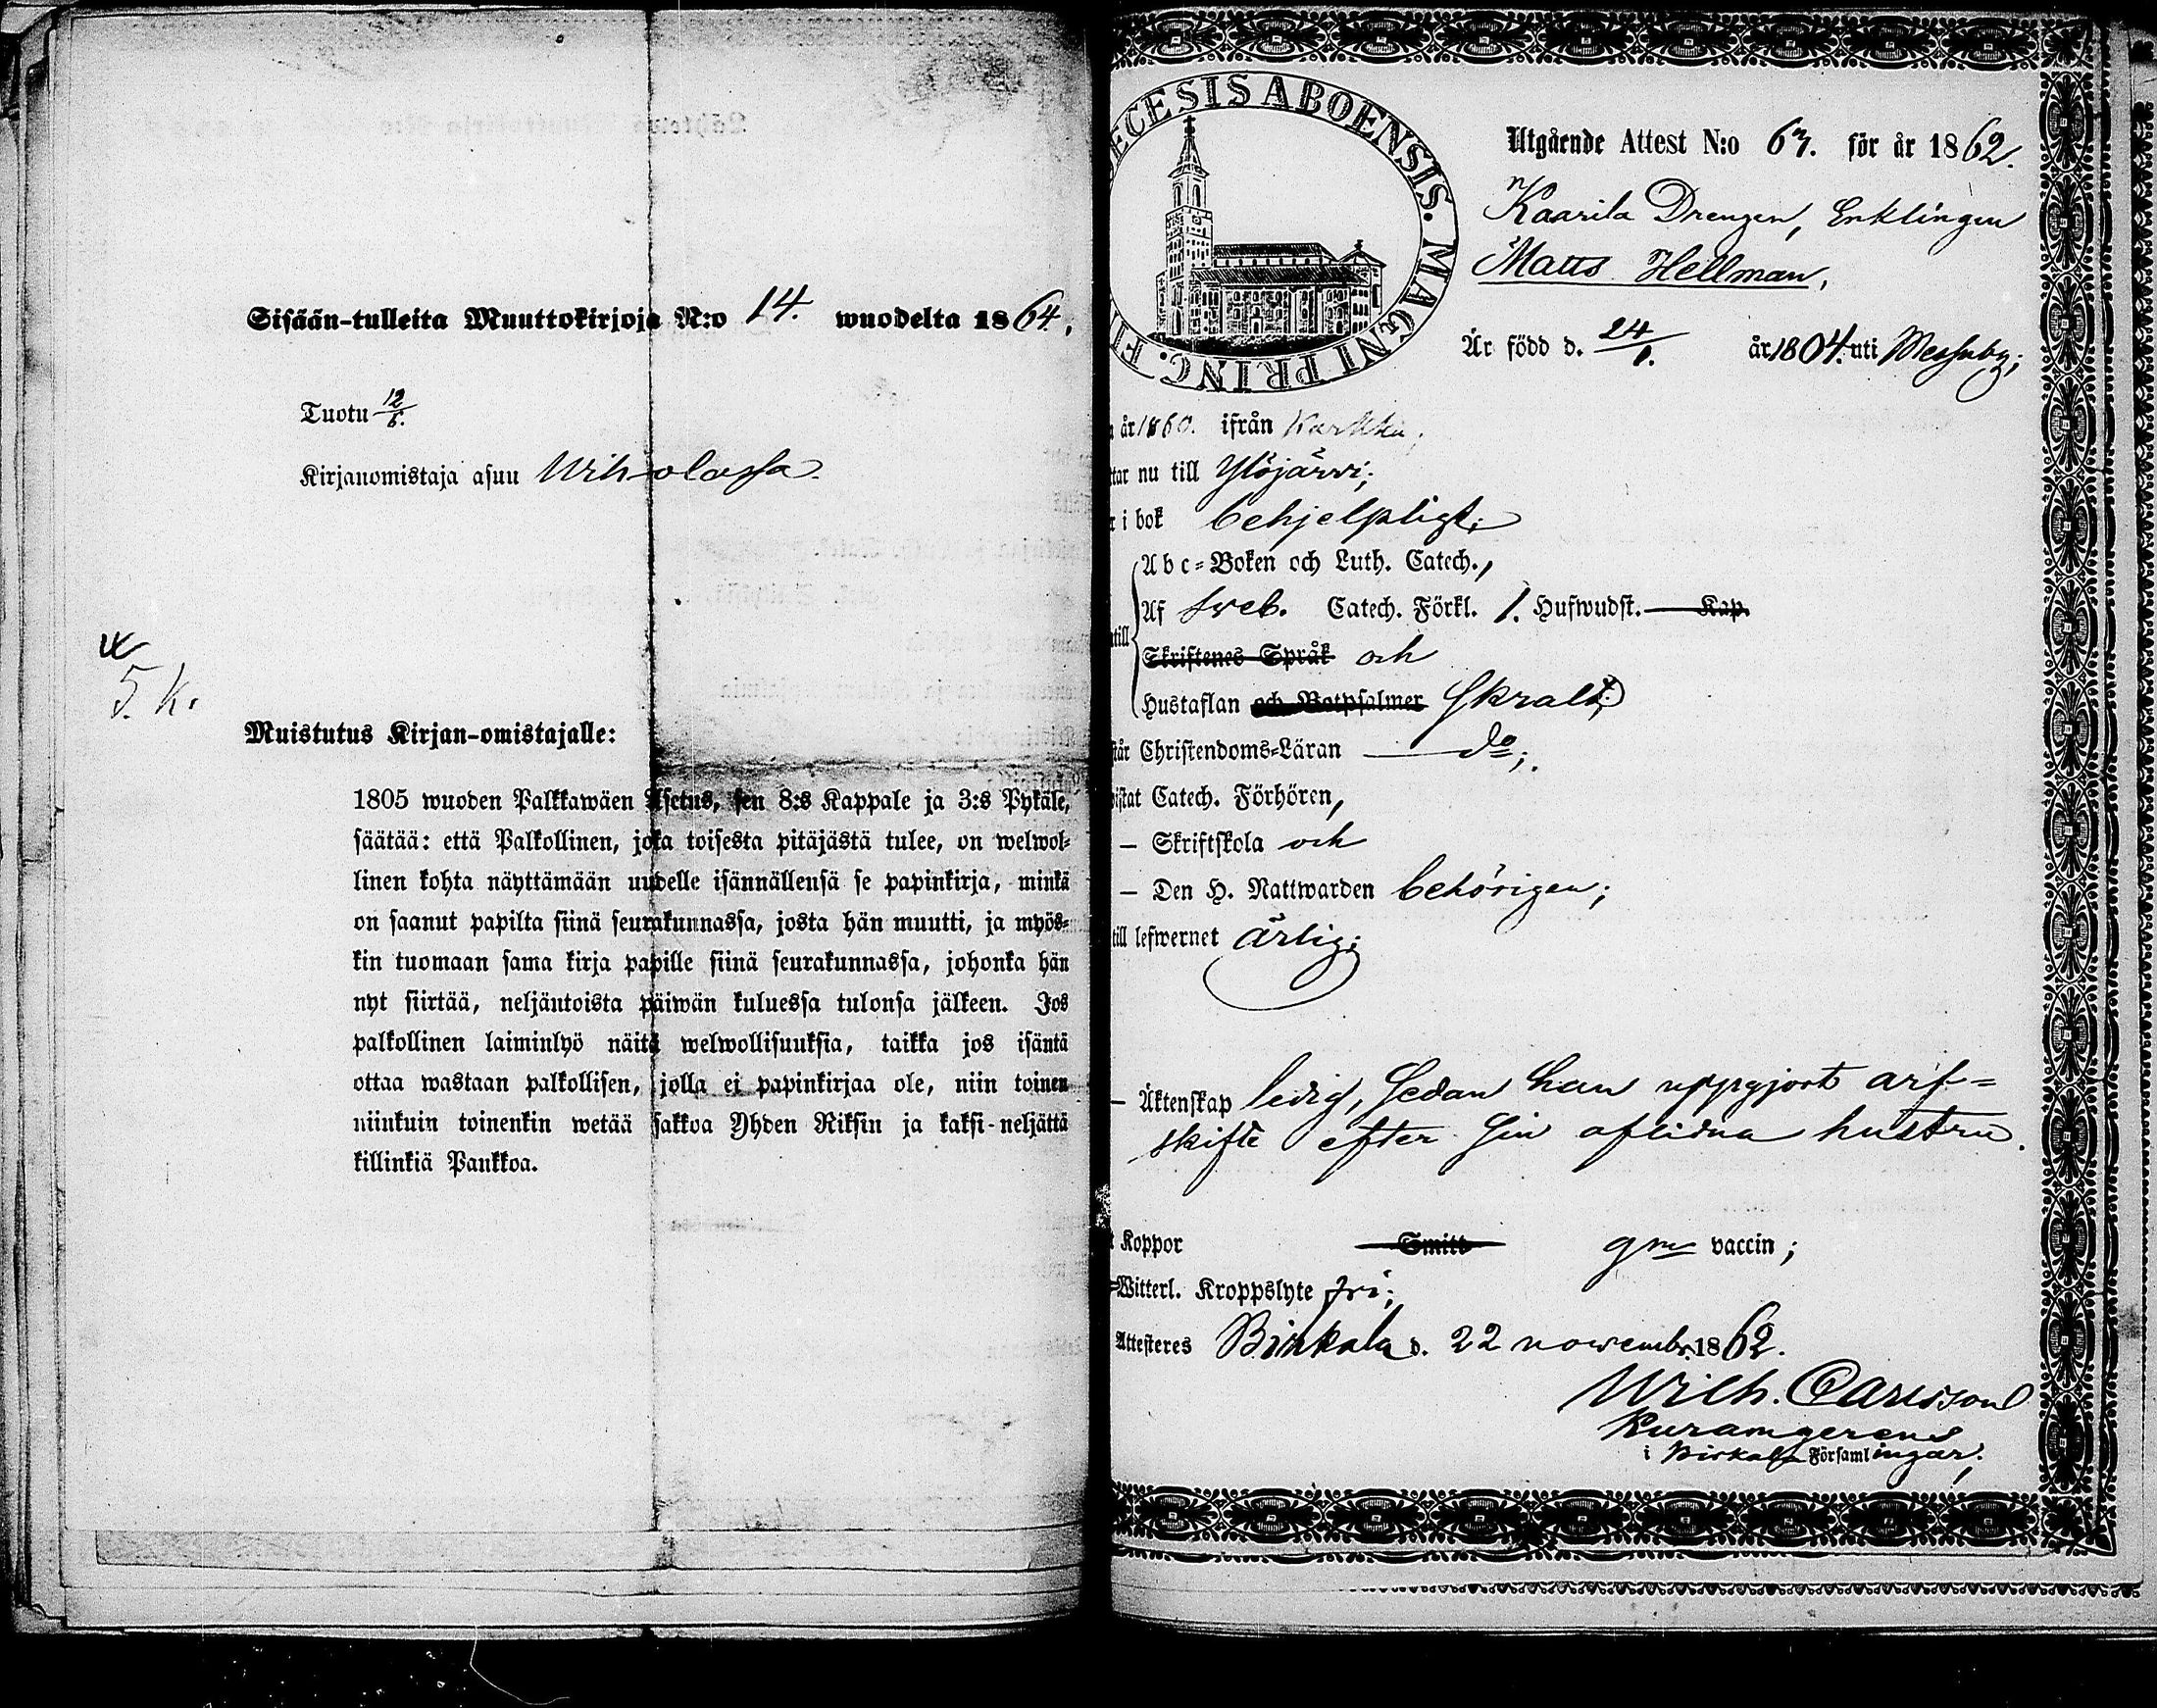 Sisään-tulleita Muuttokirjoja N:o 14. wuodelta 1864.
Tuotu 12/6.
Kirjanomistaja asuu Wiholassa.
5. K.
Muistutus Kirjan-omistajalle:
1805 wuoden Palkkawäen Asetus, sen 8:s Kappale ja 3:s Pykäle,
säätää: että Palkollinen, joka toisesta pitäjästä tulee, on welwol-
linen kohta näyttämään uudelle isännällensä se papinkirja, minkä
on saanut papilta siinä seurakunnassa, josta hän muutti, ja myös-
kin tuomaan sama kirja papille siinä seurakunnassa, johonka hän
nyt siirtää, neljäntoista päiwän kuluessa tulonsa jälkeen. Jos
palkollinen laiminlyö näitä welwollisuuksia, taikka jos isäntä
ottaa wastaan palkollisen, jolla ei papinkirjaa ole, niin toinen
niinkuin toinenkin wetää sakkoa Yhden Riksin ja kaksi-neljättä
killinkiä Pankkoa.
ECESIS ABOENSIS. MAGNI PRINC. FI
Utgående Attest N:o 67. för år 1862.
Kaarila Drengen, Enklingen
Matts Hellman,
Är född d. 24/1. år 1804. uti Messuby;
år 1860. ifrån Karkku;
tar nu till Ylöjärvi;
r i bok behjelpligt;
Abc-Boken och Luth. Catech.,
Af Sveb. Catech. Förkl. 1. Hufwudst. Kap.
till
Skriftenes Språk och
Hustaflan och Botpsalmer skralt;
står Christendoms-Läran do;
istat Catech. Förhören,
— Skriftskola och
— Den H. Nattwarden behörigen;
till lefwernet ärlig;
— Äktenskap ledig, sedan han uppgjort arf-
skifte efter sin aflidna hustru.
t Koppor Smitt gm vaccin;
Witterl. Kroppslyte fri;
Attesteres Birkala d. 22 novembr. 1862.
Wilh. Carlsson
i Birkala Församlingar.